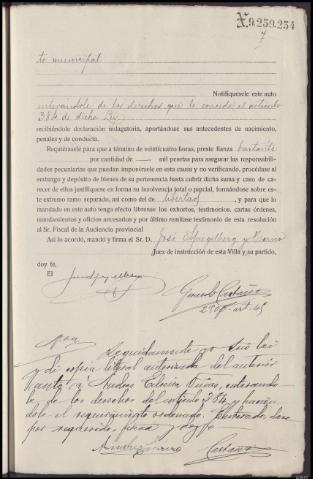 X.9.259.254
7
to municipal
Notifíquesele este auto
enterándole de los derechos que le concede el artículo
384 de dicha Ley,
recibiéndole declaración indagatoria, aportándose sus antecedentes de nacimiento,
penales y de conducta.
Requiérasele para que a término de veinticuatro horas, preste fianza bastante
por cantidad de — mil pesetas para asegurar las responsabili-
dades pecuniarias que puedan imponérsele en esta causa y no verificando, procédase al
embargo y depósito de bienes de su pertenencia hasta cubrir dicha suma y caso de care-
cer de ellos justifíquese en forma su insolvencia total o parcial, formándose sobre es-
te extremo ramo separado, así como del de libertad, y para que lo
mandado en este auto tenga efecto líbrense los exhortos, testimonios, cartas órdenes,
mandamientos y oficios necesarios y por último remítase testimonio de esta resolución
al Sr. Fiscal de la Audiencia provincial
Así lo acordó, mandó y firma el Sr. D. José
Juez de instrucción de esta Villa y su partido,
doy fé.
El
Castaño
Seguidamente
y di copia literal autorizada del anterior
auto a Andres
de los derechos del artículo 384 y
dole el requerimiento ordenado.
por requerido, firma y doy fe
Castaño